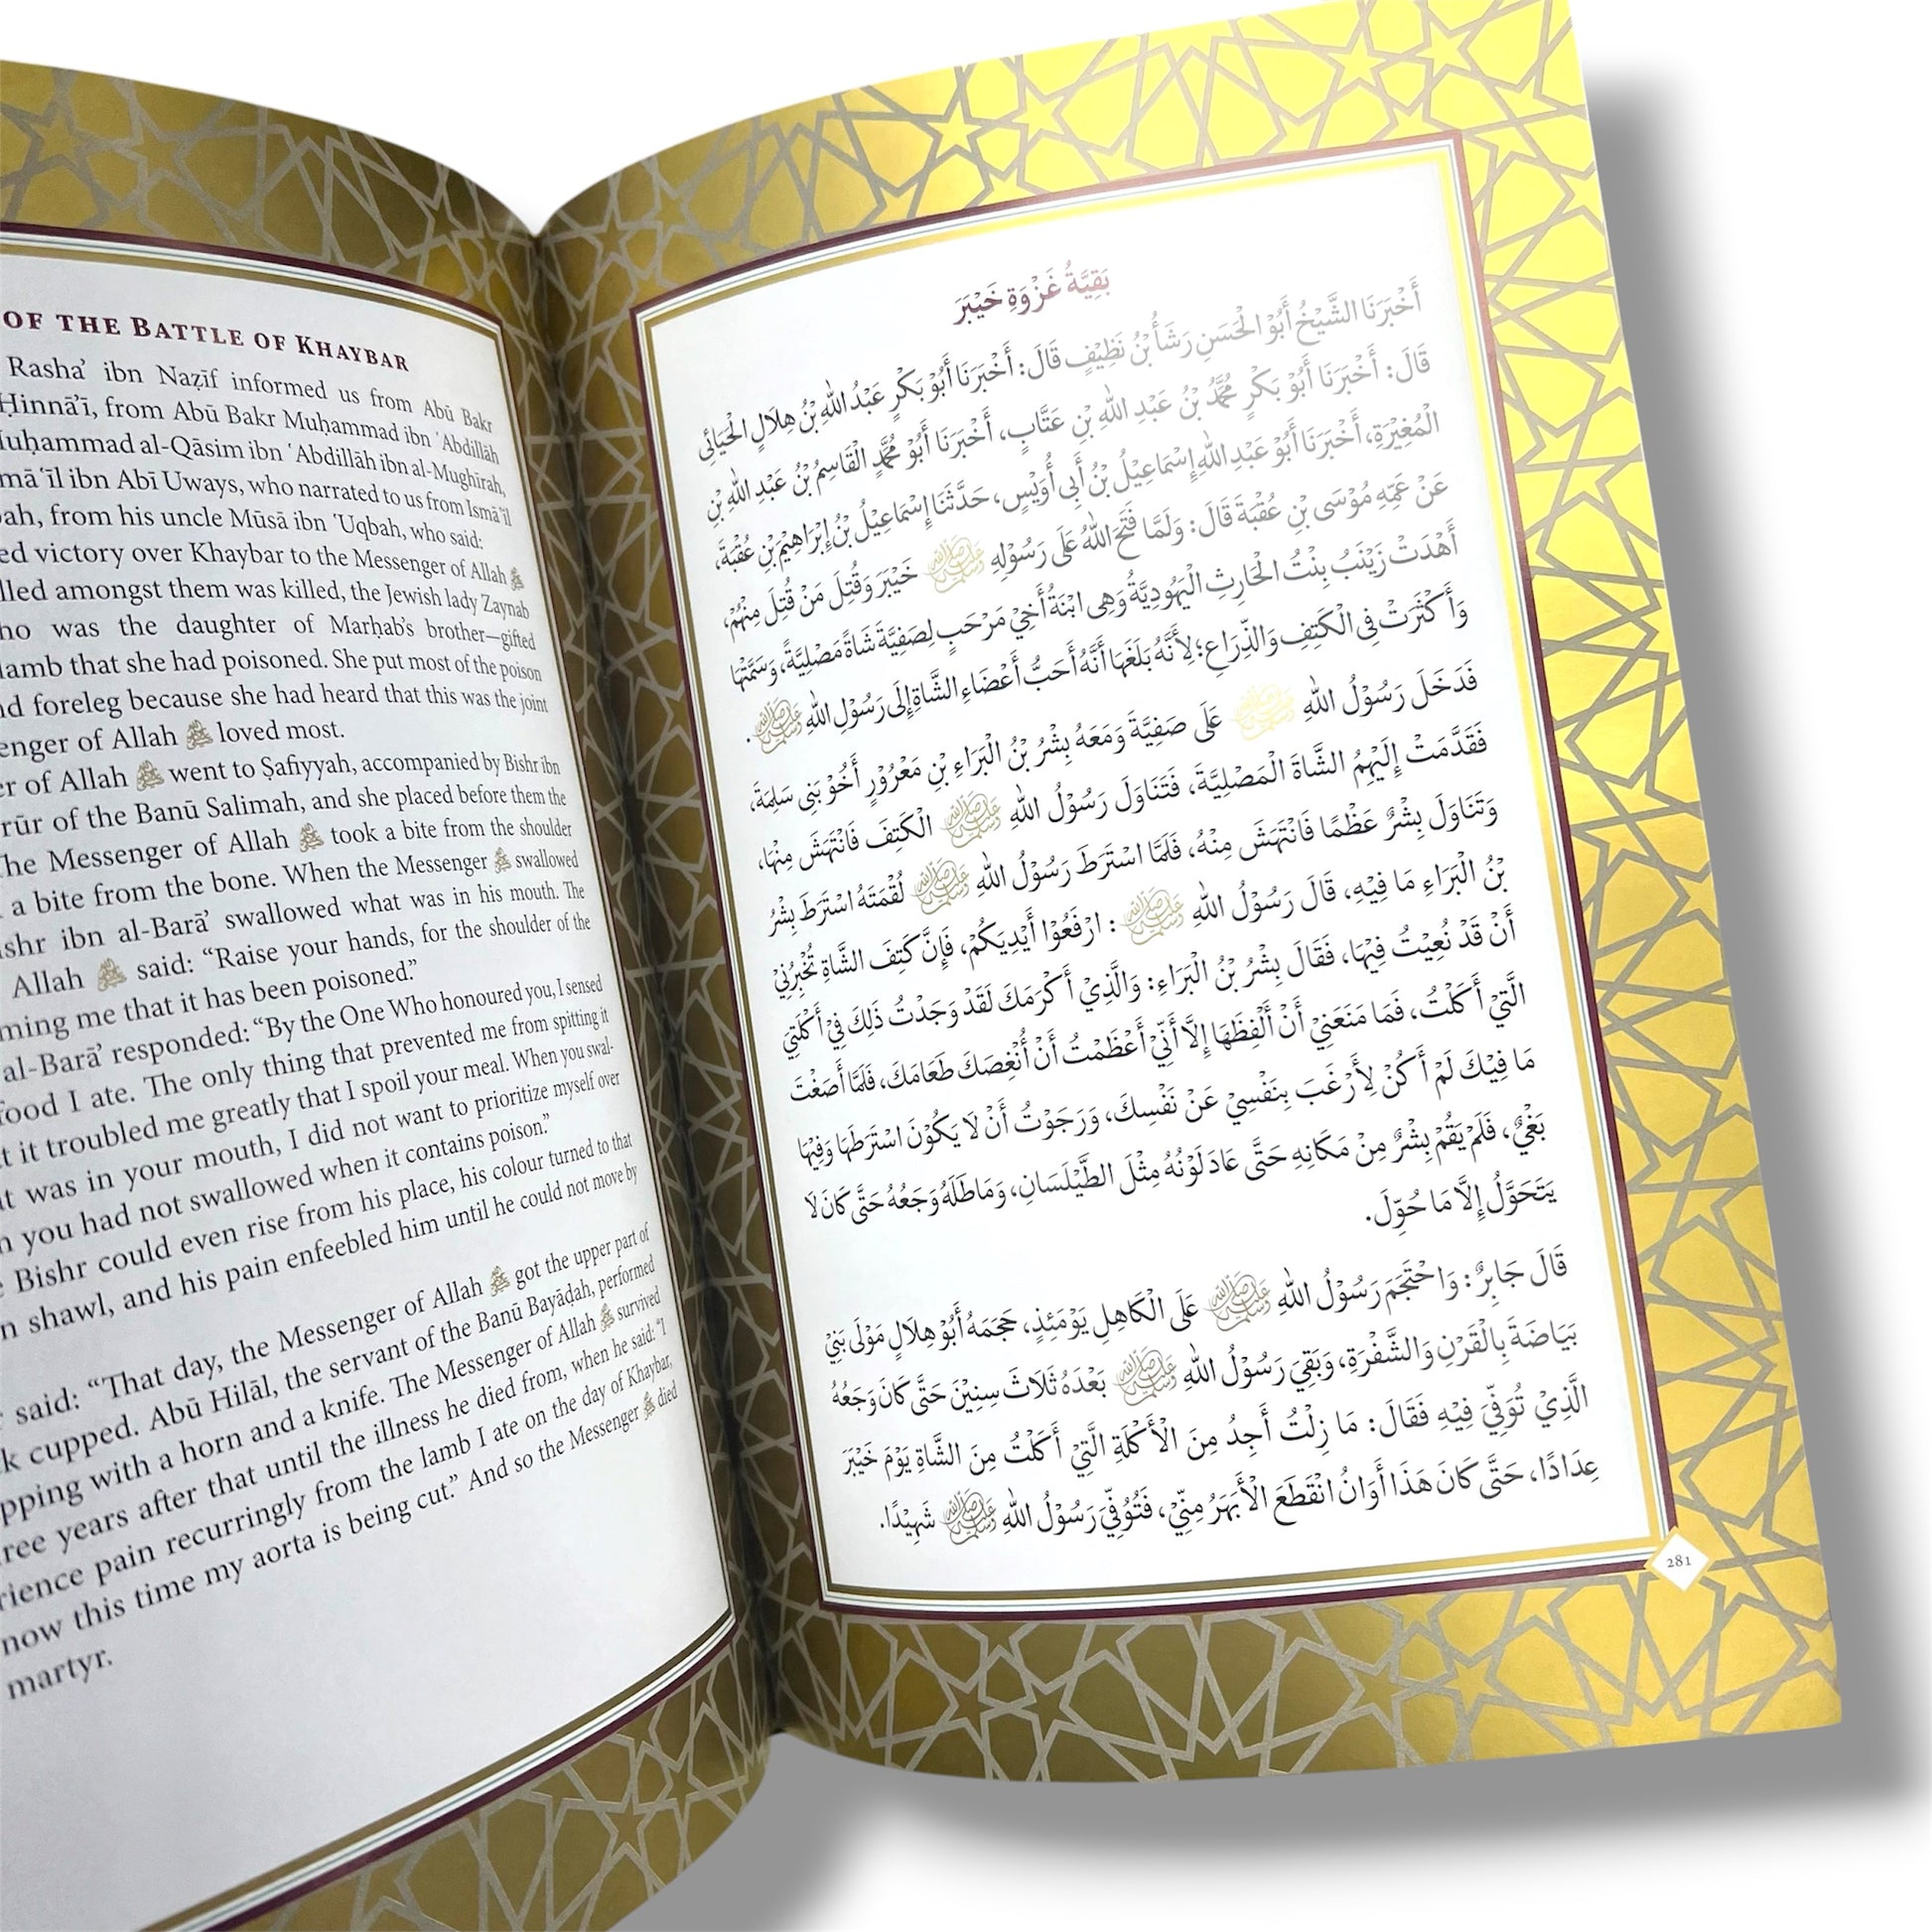 OF THE BATTLE OF KHAYBAR
Rasha’ ibn Naẓīf informed us from Abū Bakr
Ḥinnā’ī, from Abū Bakr Muḥammad ibn ʿAbdillāh
Muḥammad al-Qāsim ibn ʿAbdillāh ibn al-Mughīrah,
ibn Abī Uways, who narrated to us from Ismāʿīl
from his uncle Mūsā ibn ʿUqbah, who said:
victory over Khaybar to the Messenger of Allah ﷺ
amongst them was killed, the Jewish lady Zaynab
was the daughter of Marḥab’s brother—gifted
lamb that she had poisoned. She put most of the poison
foreleg because she had heard that this was the joint
of Allah ﷺ loved most.
of Allah ﷺ went to Ṣafiyyah, accompanied by Bishr ibn
of the Banū Salimah, and she placed before them the
The Messenger of Allah ﷺ took a bite from the shoulder
a bite from the bone. When the Messenger ﷺ swallowed
ibn al-Barā’ swallowed what was in his mouth. The
Allah ﷺ said: “Raise your hands, for the shoulder of the
me that it has been poisoned.”
al-Barā’ responded: “By the One Who honoured you, I sensed
food I ate. The only thing that prevented me from spitting it
it troubled me greatly that I spoil your meal. When you swal-
was in your mouth, I did not want to prioritize myself over
you had not swallowed when it contains poison.”
Bishr could even rise from his place, his colour turned to that
shawl, and his pain enfeebled him until he could not move by
said: “That day, the Messenger of Allah ﷺ got the upper part of
cupped. Abū Hilāl, the servant of the Banū Bayāḍah, performed
with a horn and a knife. The Messenger of Allah ﷺ survived
years after that until the illness he died from, when he said: “I
pain recurringly from the lamb I ate on the day of Khaybar,
now this time my aorta is being cut.” And so the Messenger ﷺ died
martyr.
بَقِيَّةُ غَزْوَةِ خَيْبَرَ
أَخْبَرَنَا الشَّيْخُ أَبُوْ الْحَسَنِ رَشَأُ بْنُ نَظِيْفٍ قَالَ: أَخْبَرَنَا أَبُوْ بَكْرٍ عَبْدُ اللهِ بْنُ هِلَالٍ الْحَنَائِي
قَالَ: أَخْبَرَنَا أَبُوْ بَكْرٍ مُحَمَّدُ بْنُ عَبْدِ اللهِ بْنِ عَتَّابٍ، أَخْبَرَنَا أَبُوْ مُحَمَّدٍ الْقَاسِمُ بْنُ عَبْدِ اللهِ بْنِ
الْمُغِيْرَةِ، أَخْبَرَنَا أَبُوْ عَبْدِ اللهِ إِسْمَاعِيْلُ بْنُ أَبِى أُوَيْسٍ، حَدَّثَنَا إِسْمَاعِيْلُ بْنُ إِبْرَاهِيْمَ بْنِ عُقْبَةَ،
عَنْ عَمِّهِ مُوْسَى بْنِ عُقْبَةَ قَالَ: وَلَمَّا فَتَحَ اللهُ عَلَى رَسُوْلِهِ ﷺ خَيْبَرَ وَقُتِلَ مَنْ قُتِلَ مِنْهُمْ،
أَهْدَتْ زَيْنَبُ بِنْتُ الْحَارِثِ الْيَهُوْدِيَّةُ وَهِى ابْنَةُ أَخِيْ مَرْحَبٍ لِصَفِيَّةَ شَاةً مَصْلِيَّةً، وَسَمَّتْهَا
وَأَكْثَرَتْ فِى الْكَتِفِ وَالذِّرَاعِ؛ لِأَنَّهُ بَلَغَهَا أَنَّهُ أَحَبُّ أَعْضَاءِ الشَّاةِ إِلَى رَسُوْلِ اللهِ ﷺ.
فَدَخَلَ رَسُوْلُ اللهِ ﷺ عَلَى صَفِيَّةَ وَمَعَهُ بِشْرُ بْنُ الْبَرَاءِ بْنِ مَعْرُوْرٍ أَخُوْ بَنِى سَلِمَةَ،
فَقَدَّمَتْ إِلَيْهِمُ الشَّاةَ الْمَصْلِيَّةَ، فَتَنَاوَلَ رَسُوْلُ اللهِ ﷺ الْكَتِفَ فَانْتَهَشَ مِنْهَا،
وَتَنَاوَلَ بِشْرٌ عَظْمًا فَانْتَهَشَ مِنْهُ، فَلَمَّا اسْتَرَطَ رَسُوْلُ اللهِ ﷺ لُقْمَتَهُ اسْتَرَطَ بِشْرُ
بْنُ الْبَرَاءِ مَا فِيْهِ، قَالَ رَسُوْلُ اللهِ ﷺ: ارْفَعُوْا أَيْدِيَكُمْ، فَإِنَّ كَتِفَ الشَّاةِ تُخْبِرُنِيْ
أَنْ قَدْ نُعِيْتُ فِيْهَا، فَقَالَ بِشْرُ بْنُ الْبَرَاءِ: وَالَّذِيْ أَكْرَمَكَ لَقَدْ وَجَدْتُ ذَلِكَ فِيْ أَكْلَتِيْ
الَّتِيْ أَكَلْتُ، فَمَا مَنَعَنِيْ أَنْ أَلْفِظَهَا إِلَّا أَنِّيْ أَعْظَمْتُ أَنْ أُنْغِصَكَ طَعَامَكَ، فَلَمَّا أَصَغْتَ
مَا فِيْكَ لَمْ أَكُنْ لِأَرْغَبَ بِنَفْسِيْ عَنْ نَفْسِكَ، وَرَجَوْتُ أَنْ لَا يَكُوْنَ اسْتَرَطَهَا وَفِيْهَا
بَغْيٌ، فَلَمْ يَقُمْ بِشْرٌ مِنْ مَكَانِهِ حَتَّى عَادَ لَوْنُهُ مِثْلَ الطَّيْلَسَانِ، وَمَاطَلَهُ وَجَعُهُ حَتَّى كَانَ لَا
يَتَحَوَّلُ إِلَّا مَا حُوِّلَ.
قَالَ جَابِرٌ: وَاحْتَجَمَ رَسُوْلُ اللهِ ﷺ عَلَى الْكَاهِلِ يَوْمَئِذٍ، حَجَمَهُ أَبُوْ هِلَالٍ مَوْلَى بَنِيْ
بَيَاضَةَ بِالْقَرْنِ وَالشَّفْرَةِ، وَبَقِيَ رَسُوْلُ اللهِ ﷺ بَعْدَهُ ثَلَاثَ سِنِيْنَ حَتَّى كَانَ وَجَعُهُ
الَّذِيْ تُوُفِّيَ فِيْهِ فَقَالَ: مَا زِلْتُ أَجِدُ مِنَ الْأَكْلَةِ الَّتِيْ أَكَلْتُ مِنَ الشَّاةِ يَوْمَ خَيْبَرَ
عِدَادًا، حَتَّى كَانَ هَذَا أَوَانُ انْقَطَعَ الْأَبْهَرُ مِنِّيْ، فَتُوُفِّيَ رَسُوْلُ اللهِ ﷺ شَهِيْدًا.
281